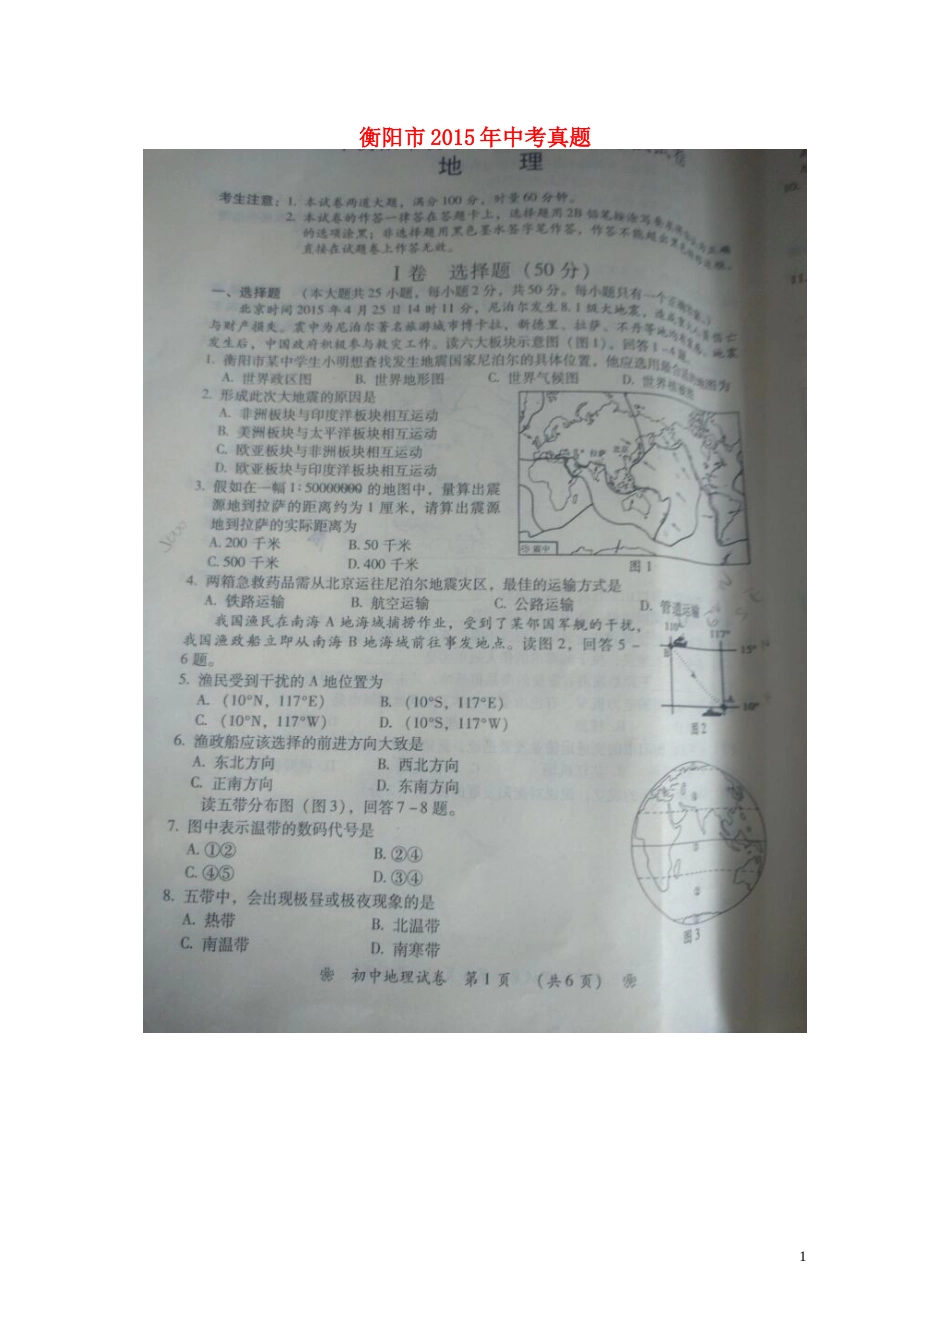 衡阳市2015年中考真题
地 理
考生注意：1. 本试卷两道大题，满分100分，时量60分钟。
2. 本试卷的作答一律答在答题卡上，选择题用2B铅笔按涂写
的选项涂黑；非选择题用黑色墨水签字笔作答，作答不能超出
直接在试题卷上作答无效。
I卷 选择题（50分）
一、选择题 （本大题共25小题，每小题2分，共50分。每小题只有一个正确答案。）
北京时间2015年4月25日14时11分，尼泊尔发生8.1级大地震，造成重大人员伤亡
与财产损失。震中为尼泊尔著名旅游城市博卡拉，新德里、拉萨、不丹等地均有震感。地震
发生后，中国政府积极参与救灾工作。读六大板块示意图（图1），回答1-4题。
1. 衡阳市某中学生小明想查找发生地震国家尼泊尔的具体位置，他应选用最合适的地图为
A. 世界政区图 B. 世界地形图 C. 世界气候图 D. 世界
2. 形成此次大地震的原因是
A. 非洲板块与印度洋板块相互运动
B. 美洲板块与太平洋板块相互运动
C. 欧亚板块与非洲板块相互运动
D. 欧亚板块与印度洋板块相互运动
拉萨 北京
震中
图1
3. 假如在一幅1:50000000的地图中，量算出震
源地到拉萨的距离约为1厘米，请算出震源
地到拉萨的实际距离为
A. 200千米 B. 50千米
C. 500千米 D. 400千米
4. 两箱急救药品需从北京运往尼泊尔地震灾区，最佳的运输方式是
A. 铁路运输 B. 航空运输 C. 公路运输 D. 管道运输
我国渔民在南海A地海域捕捞作业，受到了某邻国军舰的干扰，
我国渔政船立即从南海B地海域前往事发地点。读图2，回答5-
6题。
110° 117°
B 15°
10°
图2
5. 渔民受到干扰的A地位置为
A. (10°N，117°E) B. (10°S，117°E)
C. (10°N，117°W) D. (10°S，117°W)
6. 渔政船应该选择的前进方向大致是
A. 东北方向 B. 西北方向
C. 正南方向 D. 东南方向
读五带分布图（图3），回答7-8题。
7. 图中表示温带的数码代号是
A. ①② B. ②④
C. ④⑤ D. ③④
8. 五带中，会出现极昼或极夜现象的是
A. 热带 B. 北温带
C. 南温带 D. 南寒带
图3
初中地理试卷 第1页 （共6页）
10.
11.
1